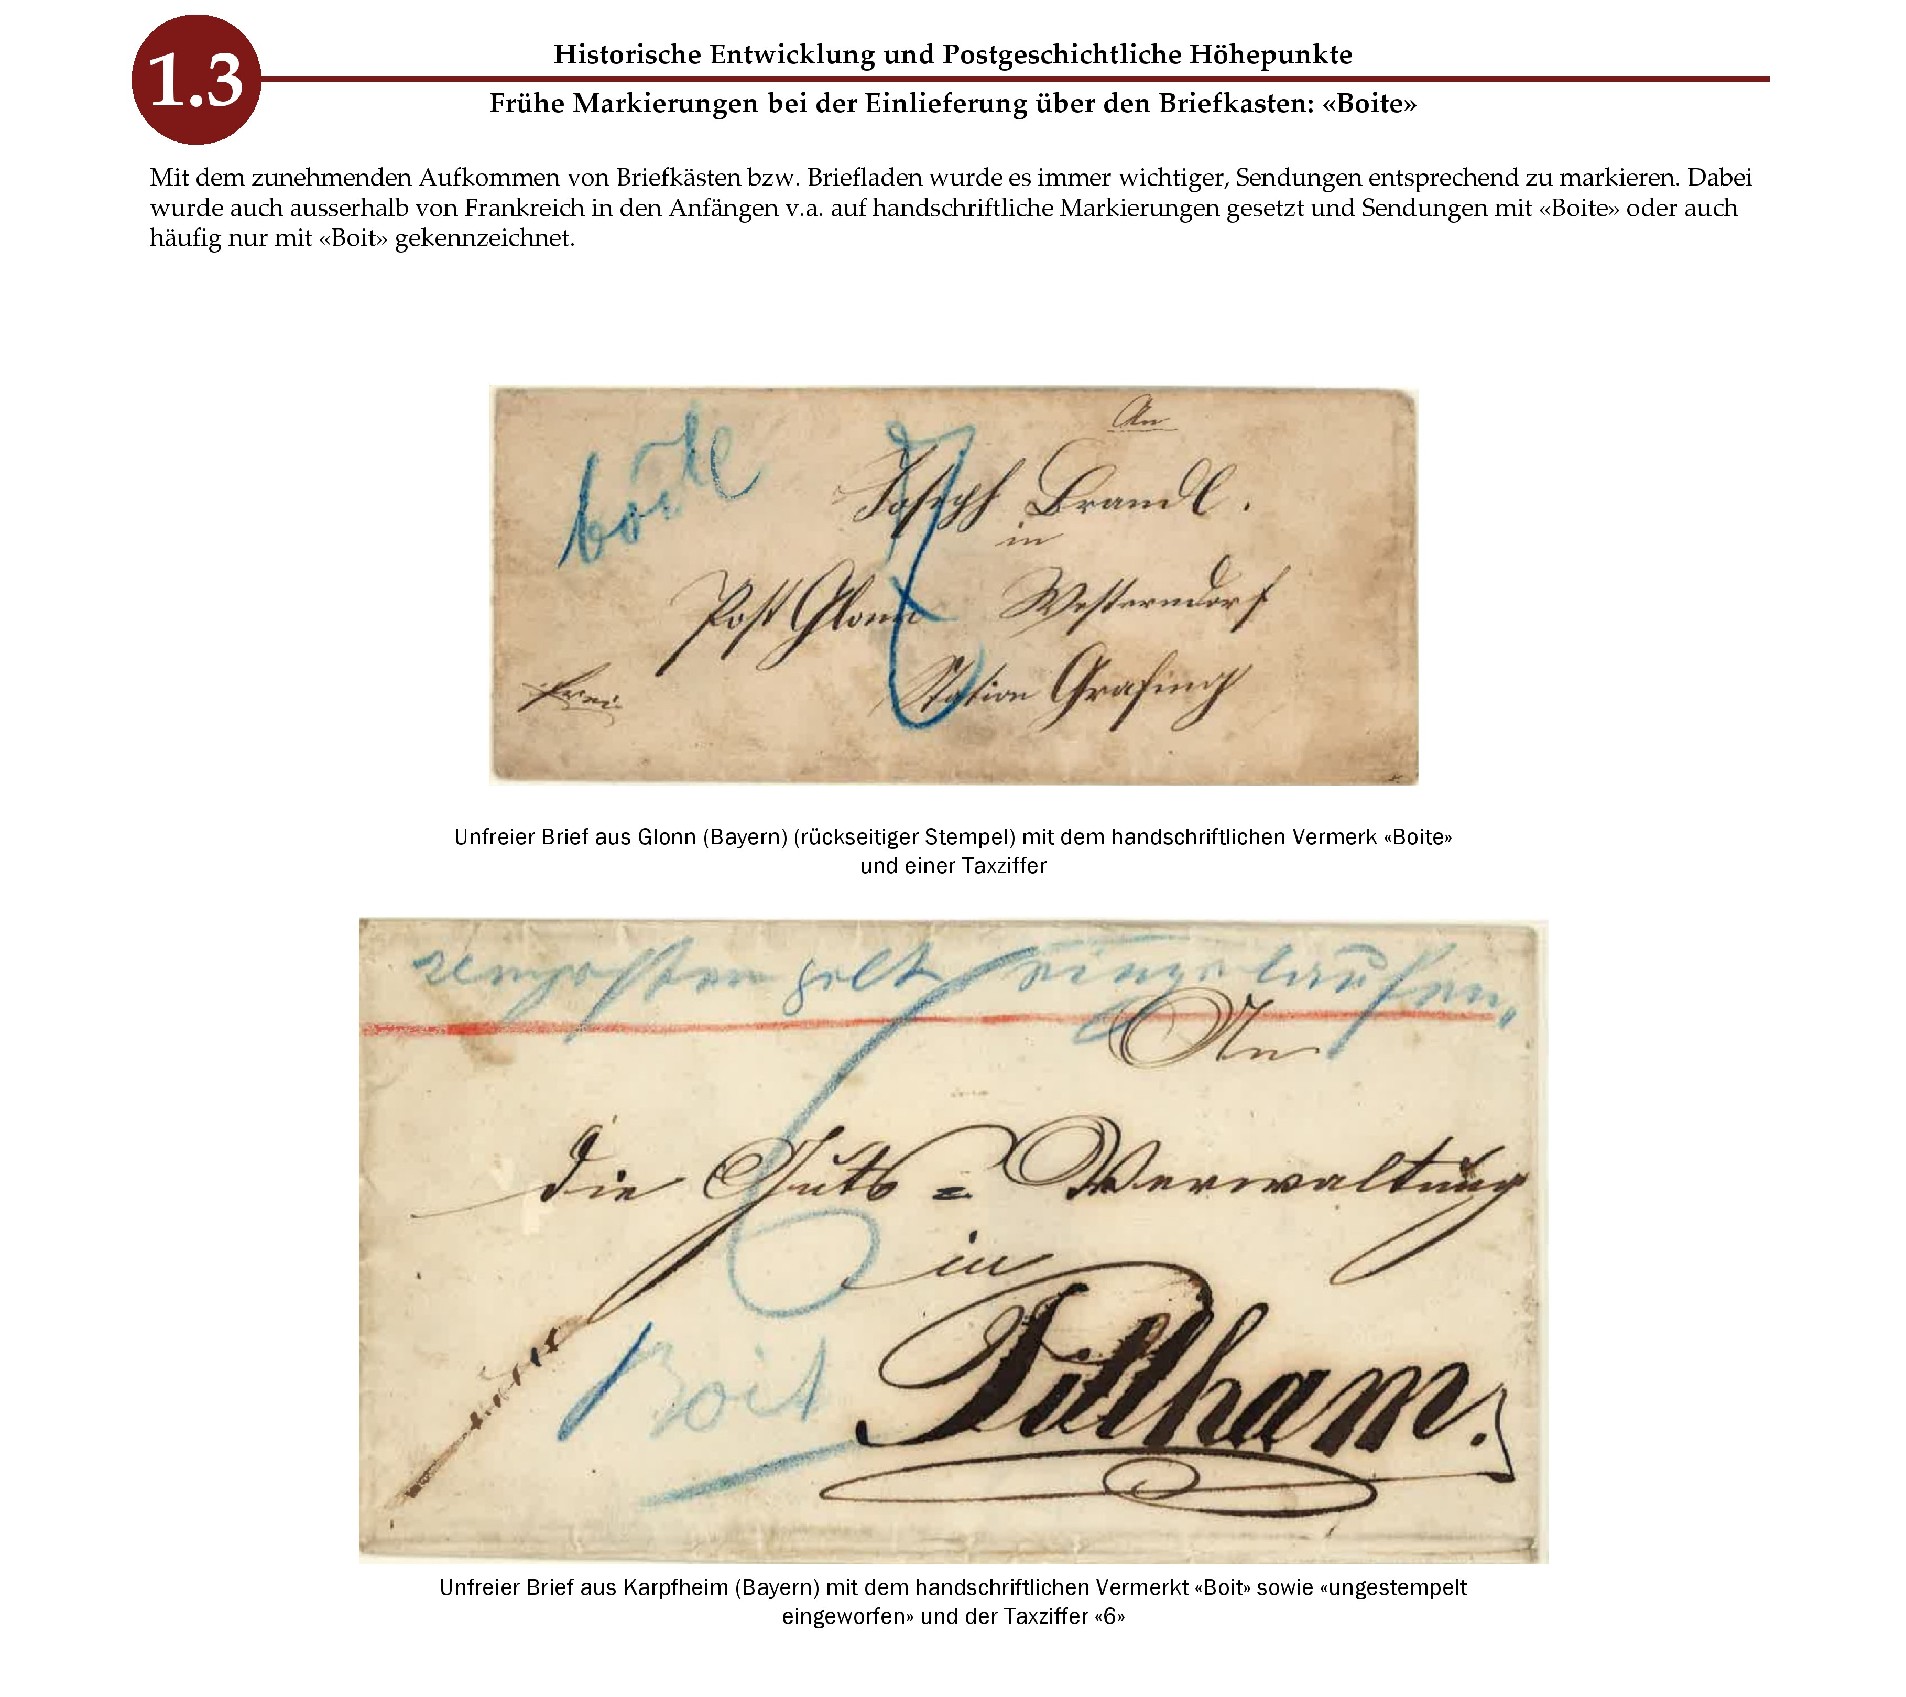 1.3
Historische Entwicklung und Postgeschichtliche Höhepunkte
Frühe Markierungen bei der Einlieferung über den Briefkasten: «Boite»
Mit dem zunehmenden Aufkommen von Briefkästen bzw. Briefladen wurde es immer wichtiger, Sendungen entsprechend zu markieren. Dabei
wurde auch ausserhalb von Frankreich in den Anfängen v.a. auf handschriftliche Markierungen gesetzt und Sendungen mit «Boite» oder auch
häufig nur mit «Boit» gekennzeichnet.
An
boite
Joseph Brandl.
in
Post Glonn Westerndorf
frei
Station Grafing
Unfreier Brief aus Glonn (Bayern) (rückseitiger Stempel) mit dem handschriftlichen Vermerk «Boite»
und einer Taxziffer
eingelaufen
An
die Guts=Verwaltung
6
in
Boit
Unfreier Brief aus Karpfheim (Bayern) mit dem handschriftlichen Vermerkt «Boit» sowie «ungestempelt
eingeworfen» und der Taxziffer «6»